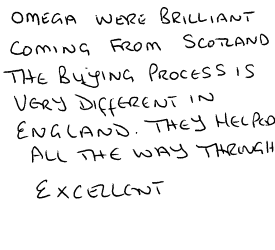 OMEGA WERE BRILLIANT
COMING FROM SCOTLAND
THE BUYING PROCESS IS
VERY DIFFERENT IN
ENGLAND. THEY HELPED
ALL THE WAY THROUGH
EXCELLENT